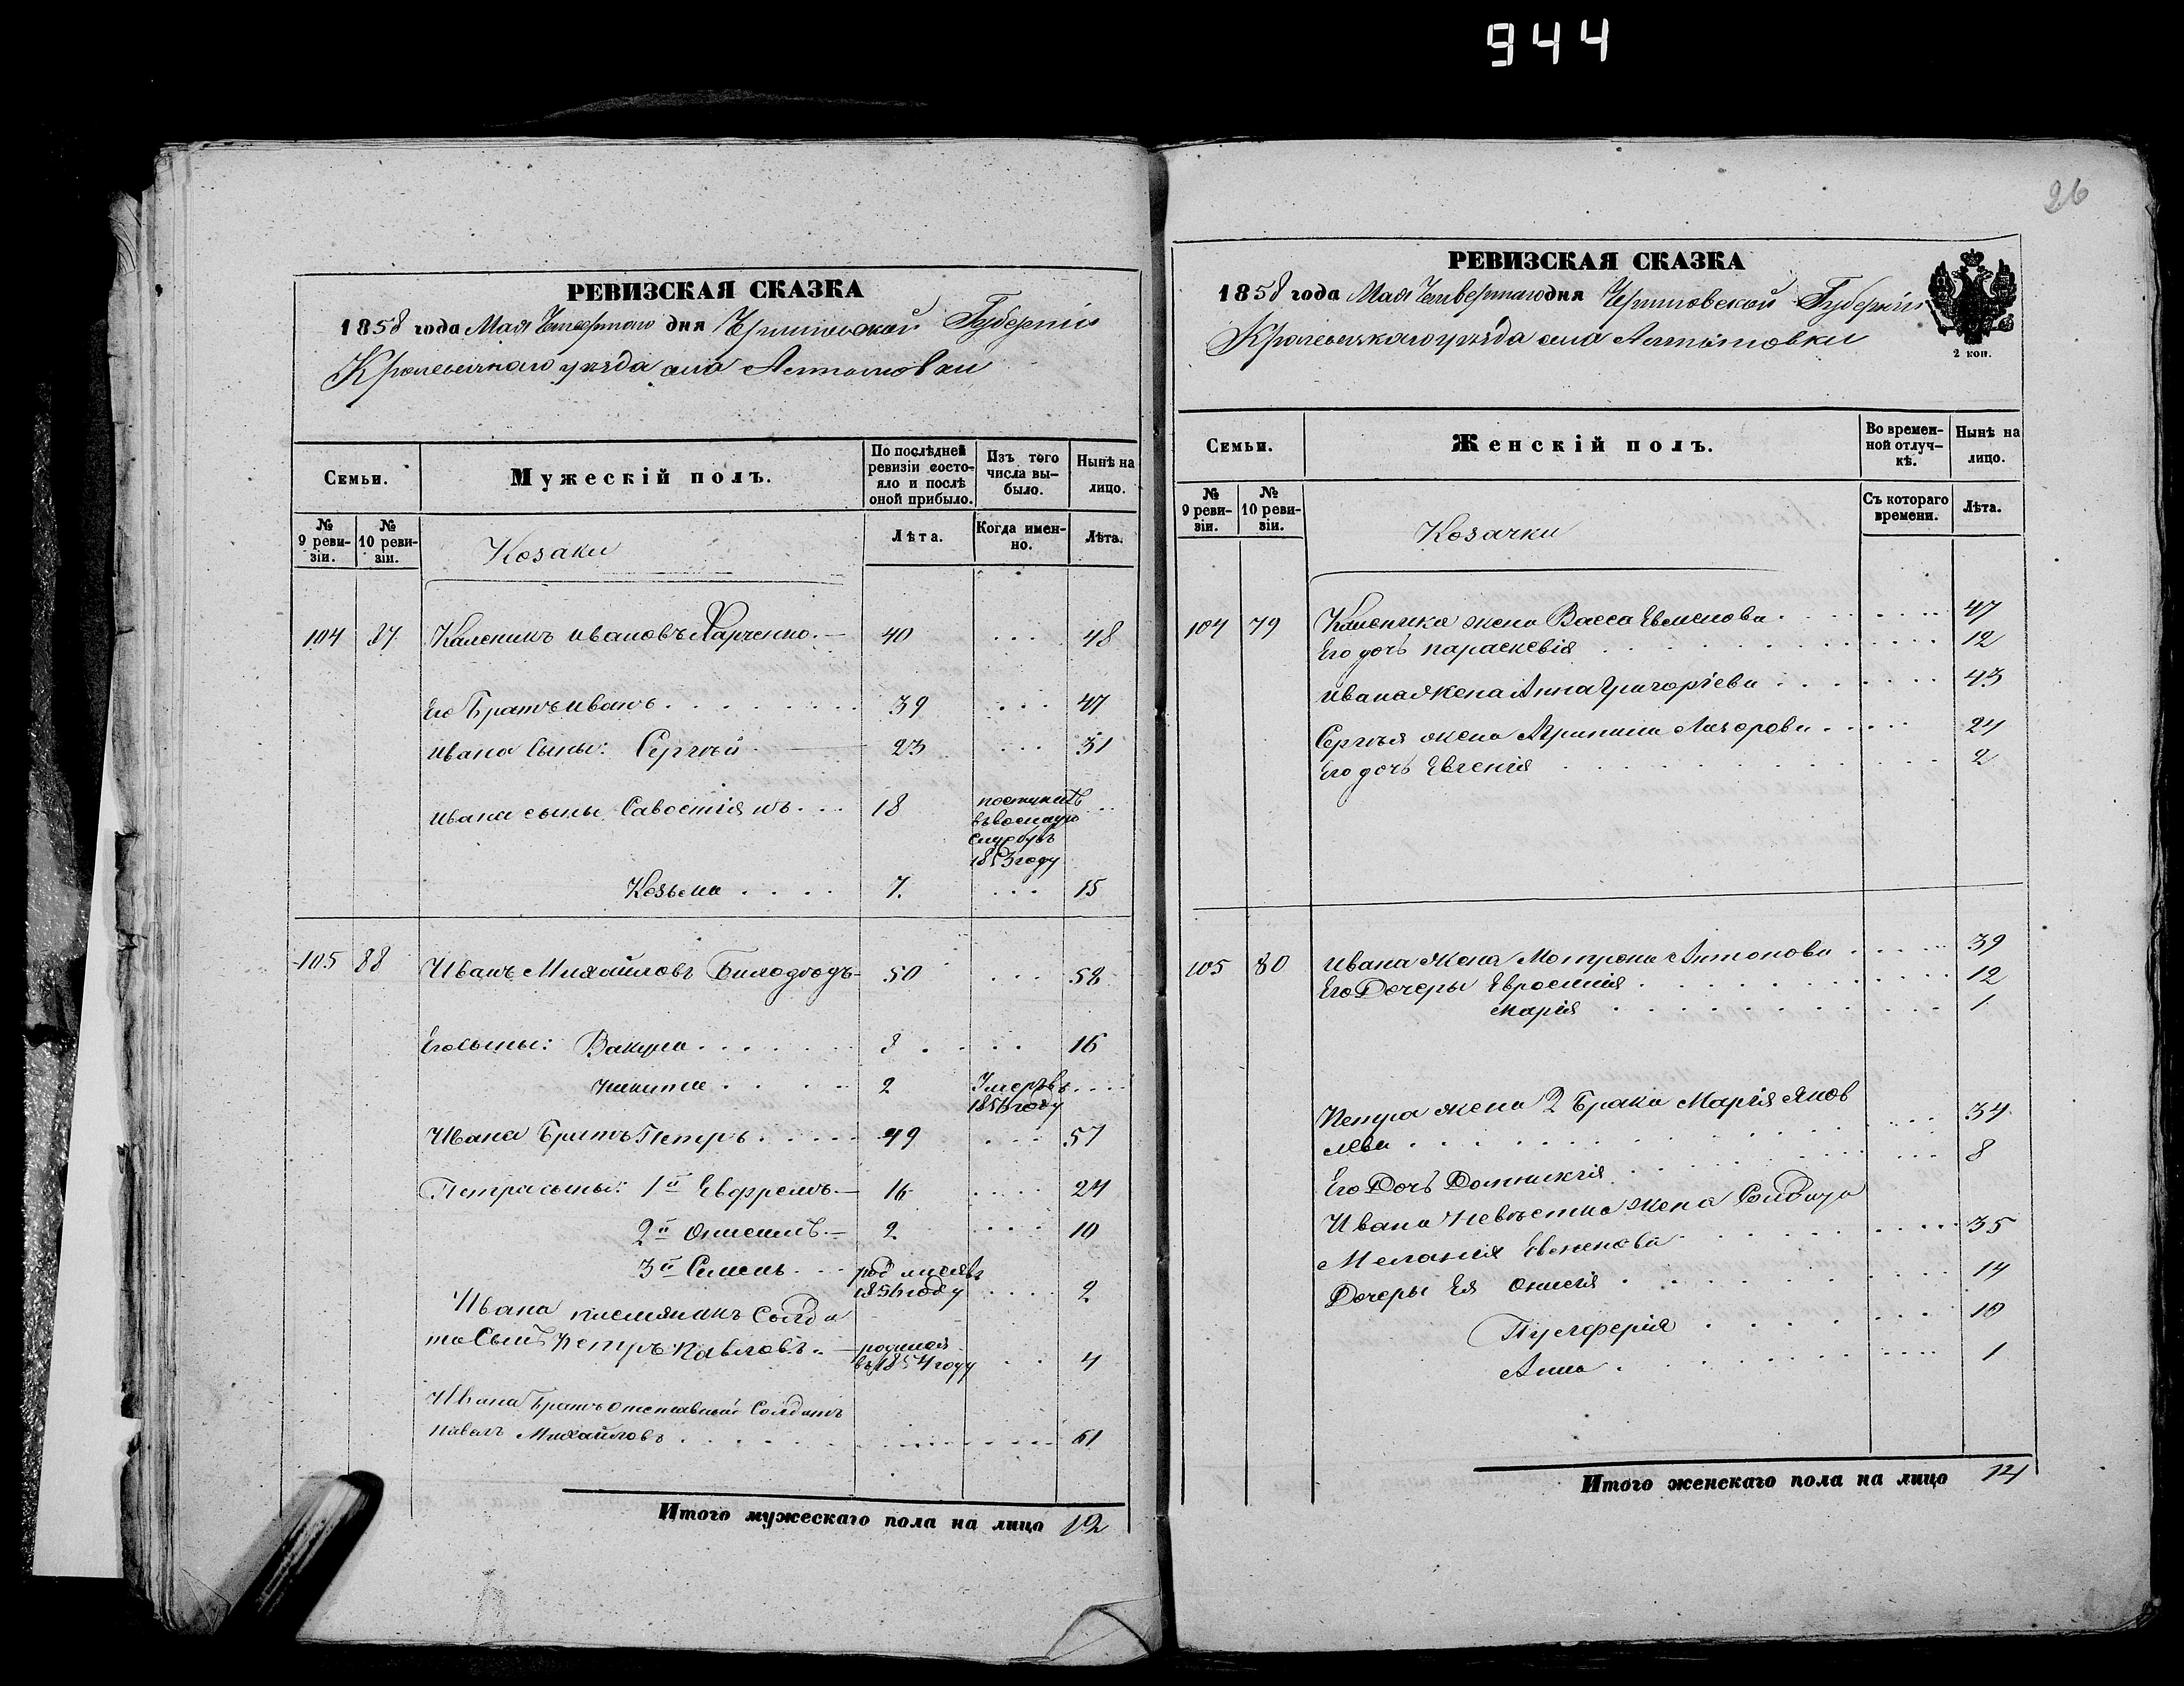 944
26
РЕВИЗСКАЯ СКАЗКА
1858 года Мая Четвертаго дня Черниговской Губерніи
Кролевецкаго уѣзда села
Семьи.
Мужескій полъ.
По послѣдней ревизіи состояло и послѣ оной прибыло.
Изъ того числа выбыло.
Нынѣ на лицо.
№ 9 ревизіи.
№ 10 ревизіи.
Козаки
Лѣта.
Когда именно.
Лѣта.
104 87 Каленикъ Ивановъ Харченко. 40 48
Его Братъ Иванъ 39 47
Ивана Сыны: Сергѣй 23 31
Ивана сыны Савостіянъ 18 поступилъ
въ военную
службу въ
1853 году
Козьма 7. 15
105 88 Иванъ Михайловъ 50 58
Его сыны: Вакула 8 16
Никита 2 Умеръ въ
1856 году
Ивана Братъ Петръ 49 57
Петра сыны: 1й Евфремъ 16 24
2й Онисимъ 2 10
3й Семенъ род
1856 году 2
Ивана племянникъ Солда
та Сынъ Петръ Павловъ родился
въ 1854 году 4
Ивана Братъ отставный Солдатъ
Павелъ Михайловъ 61
Итого мужескаго пола на лицо 12
РЕВИЗСКАЯ СКАЗКА
1858 года Мая Четвертаго дня Черниговской Губерніи
Кролевецкаго уѣзда села
2 коп.
Семьи.
Женскій полъ.
Во временной отлучкѣ.
Нынѣ на лицо.
№ 9 ревизіи.
№ 10 ревизіи.
Козачки
Съ котораго времени.
Лѣта.
104 79 Каленика жена Васса Евменова 47
Его дочь Параскевія 12
Ивана жена Анна Григоріева 43
Сергѣя жена Агрипина 24
Его дочь Евгенія 2
105 80 Ивана Жена Мотрона Антонова 39
Его Дочеры Евросинія 12
Марія 1
Петра жена 2 брака Марія Яков
лева 34
Его Дочь Домникія 8
Ивана невѣстка жена Солдата
Меланія Евменова 35
Дочеры Ея Онисія 14
Пулхерія 10
Анна 1
Итого женскаго пола на лицо 14